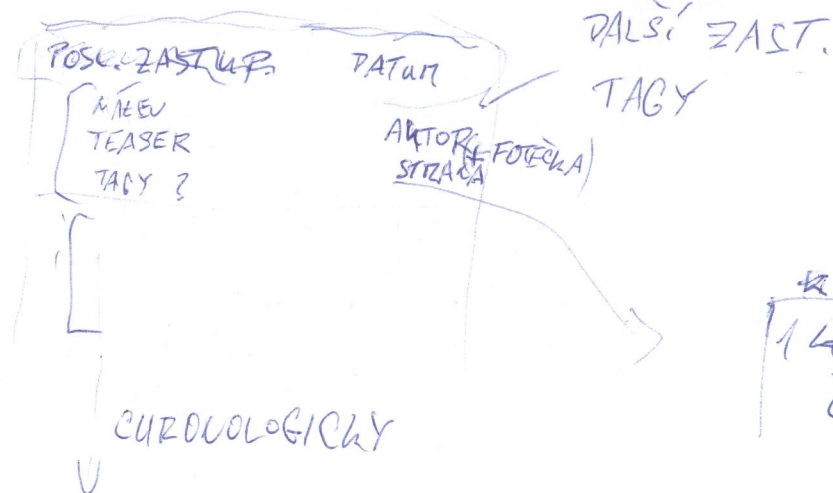 POSL. ZASTUP. DATUM
NÁZEV
TEASER
TAGY ?
AUTOR (+ FOTEČKA)
STRANA
DALŠÍ ZAST.
TAGY
CHRONOLOGICKY
1